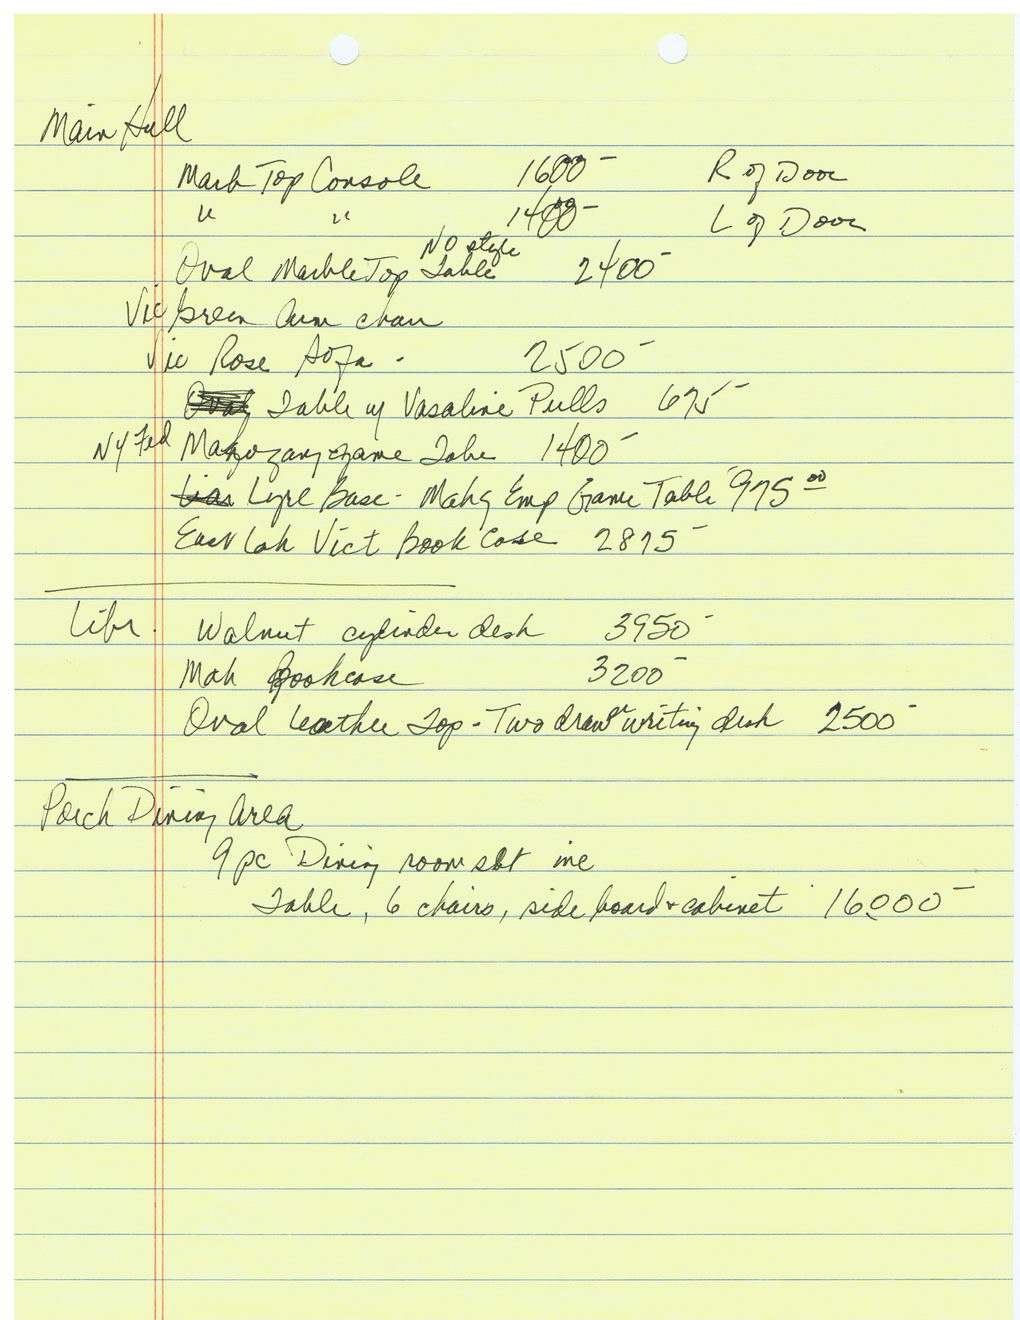 Main Hall
Marb Top Console 1600- R of Door
" " 1400- L of Door
No style
Oval Marble Top Table 2400-
Vic Green Arm chair
Vic Rose Sofa - 2500-
Table w/ Vasaline Pulls 675-
NY Fed Mahogany game Table 1400-
Lyre Base - Mahg Emp Game Table 975 00
East Lak Vict Book Case 2875-
Libr. Walnut cylinder desk 3950-
Mah Bookcase 3200-
Oval Leather Top - Two drawer writing desk 2500-
Porch Dining Area
9 pc Dining room set inc
Table, 6 chairs, side board + cabinet 16000-